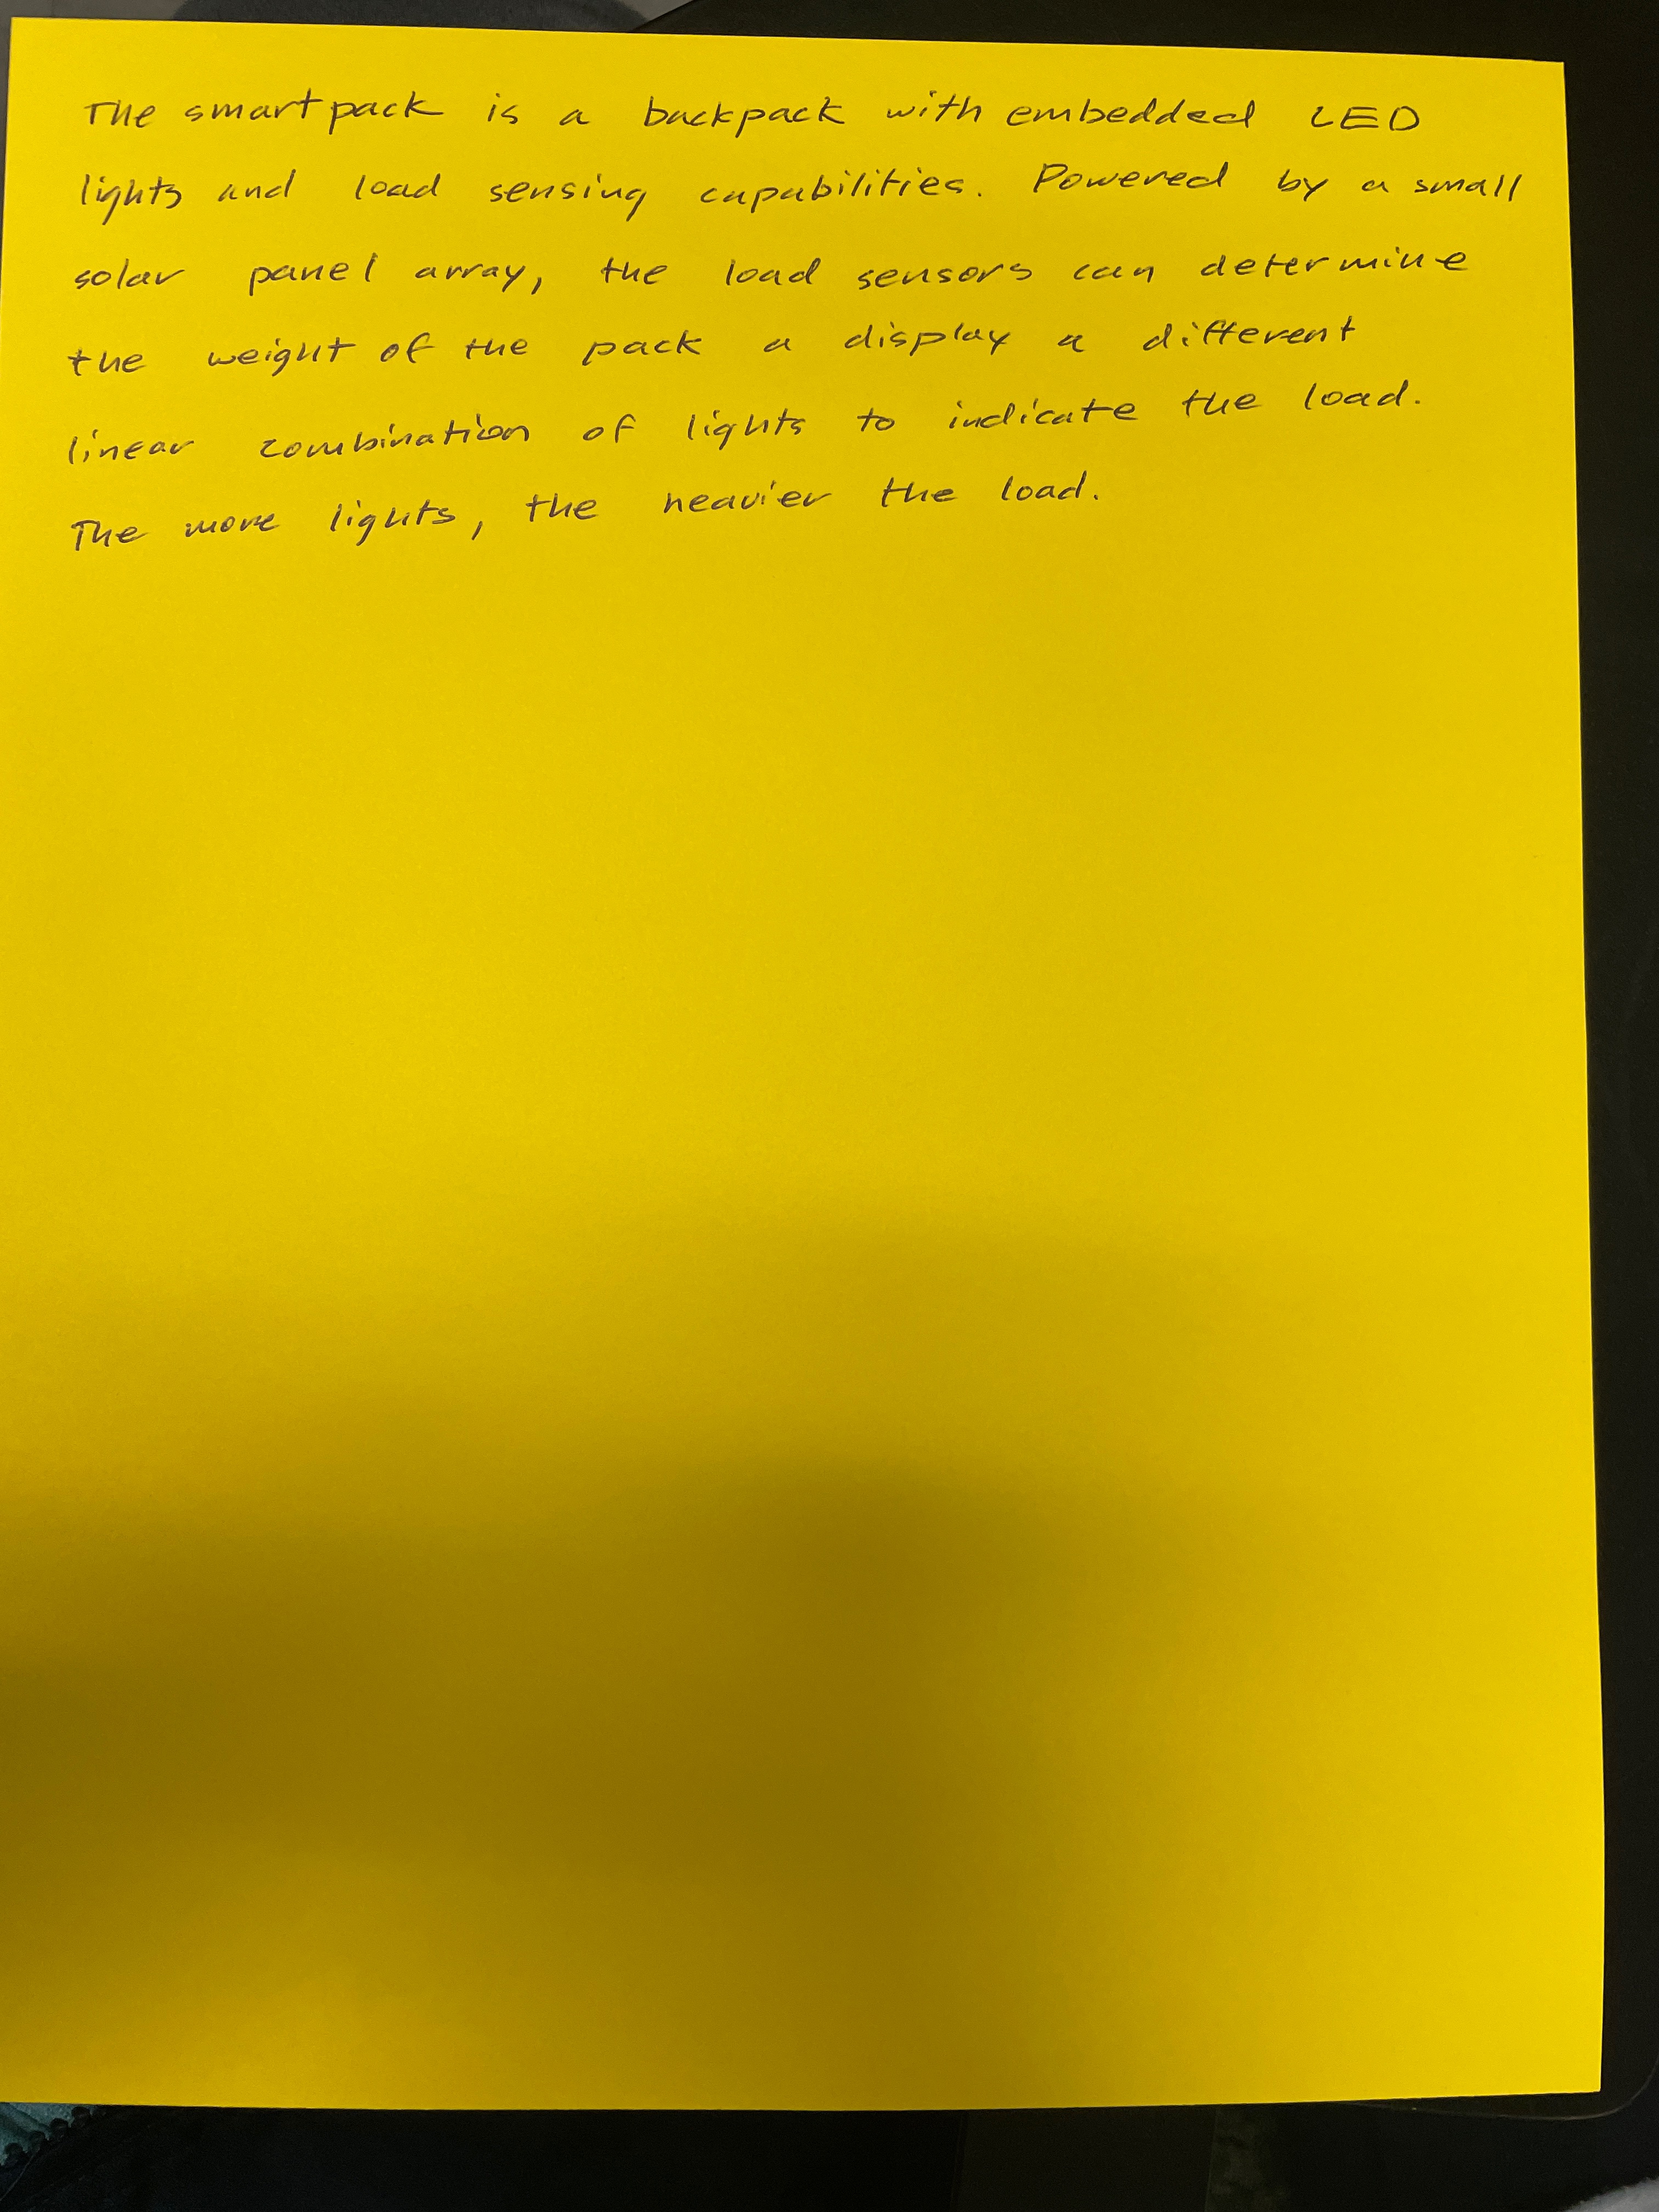 The smartpack is a backpack with embedded LED
lights and load sensing capabilities. Powered by a small
solar panel array, the load sensors can determine
the weight of the pack a display a different
linear combination of lights to indicate the load.
The more lights, the heavier the load.